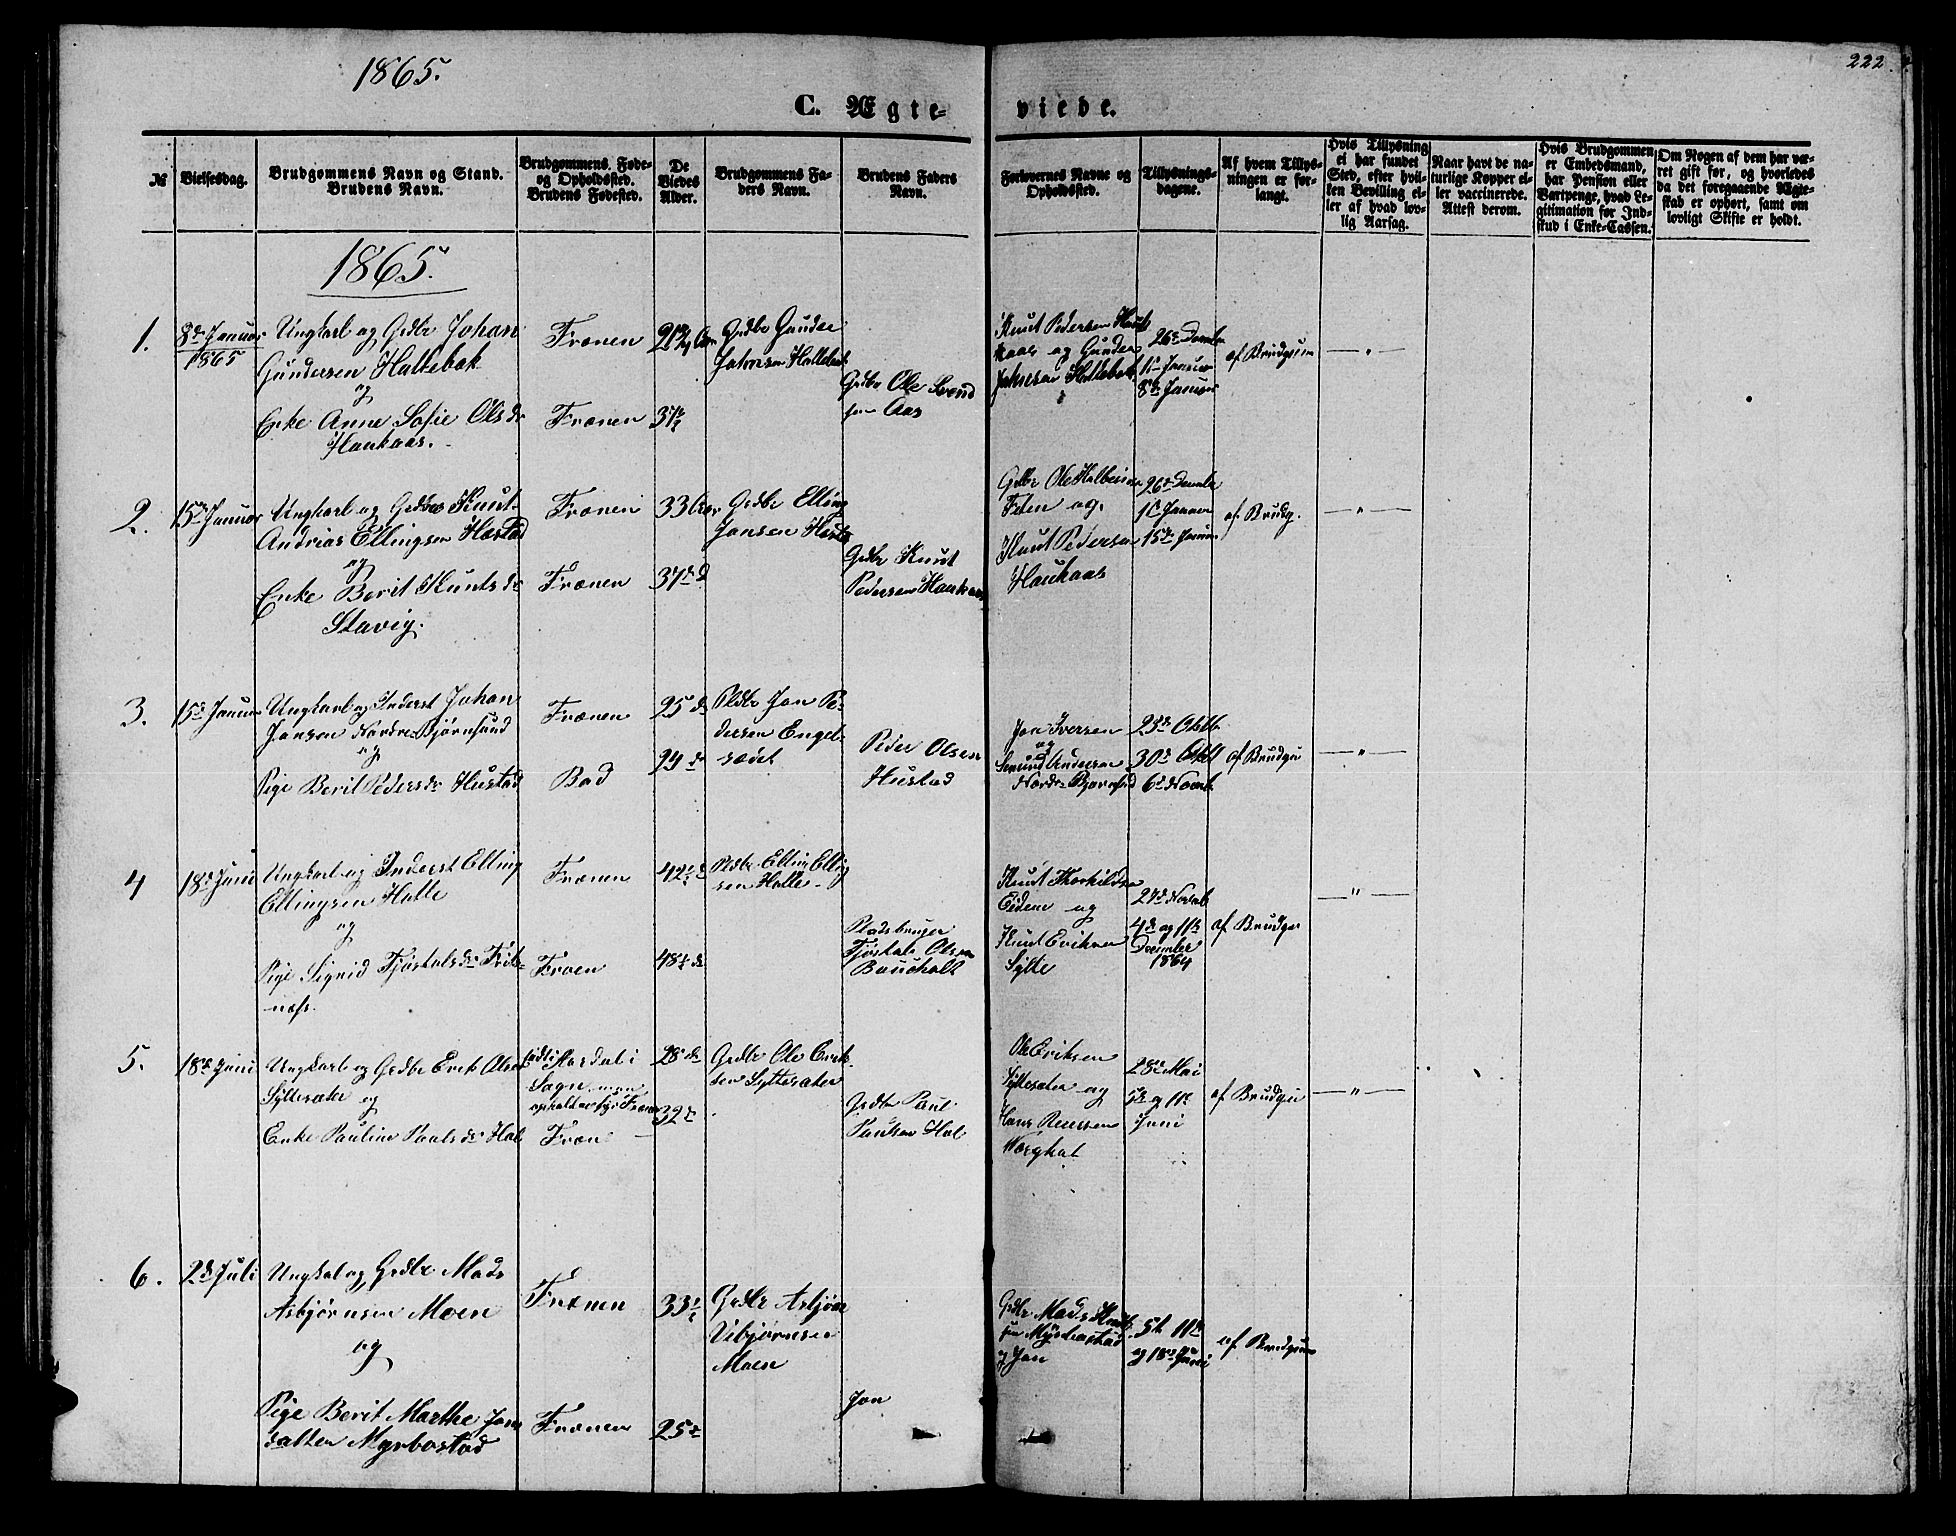 1865.
222
C. Ægte-
viede.
№
Vielsesdag.
Brudgommens Navn og Stand.
Brudens Navn.
Brudgommens Føde-
og Opholdssted.
Brudens Fødested.
De
Viedes
Alder.
Brudgommens Fa-
ders Navn.
Brudens Faders
Navn.
Forlovernes Navne og
Opholdssted.
Tillysnings-
dagene.
Af hvem Tillys-
ningen er for-
langt.
Hvis Tillysning
ei har fundet
Sted, efter hvil-
ken Bevilling el-
ler af hvad lov-
lig Aarsag.
Naar havt de na-
turlige Kopper el-
ler vaccinerede.
Attest derom.
Hvis Brudgommen
er Embedsmand,
har Pension eller
Vartpenge, hvad Le-
gitimation for Ind-
skud i Enke-Cassen.
Om Nogen af dem har væ-
ret gift før, og hvorledes
da det foregaaende Ægte-
skab er ophørt, samt om
lovligt Skifte er holdt.
1865.
1.
8de Januar
1865
Ungkarl og Grdbr Johan
Gundersen Hallebak
og
Enke Anne Sofie Olsdr
Haukaas.
Frænen
Frænen
37
Grdbr Gunder
Johnsen Hallebak
Grdbr Ole Svend
sen Aas
Knut Pedersen Hauk
kaas og Gunder
Johnsen Hallebak
26de Decmbr
1ste Januar
8de Januar
af Brudgum
— " —
2.
15de Januar
Ungkarl og Grdbr Knut
Andrias Ellingsen Hostad
og
Enke Berit Knutsdr
Stavig.
Frænen
Frænen
33 Aar
37 d
Grdbr Elling
Jansen
Grdbr Knut
Pedersen Haukaas
Gdbr Ole
og
Knut Pedersen
Haukaas
26de Decmbr
1ste Januar
15de Januar
af Brudg.
— " —
3.
15de Januar
Ungkarl og Inderst Johan
Jansen Nordre Bjørnsund
og
Pige Berit Pedersdr Hustad
Frænen
Bod
25 d
24 d
Pldbr Jan Pe-
dersen Engel-
sædet
Peder Olsen
Hustad
Jan Iversen
og
Andersen
Nordre Bjørnsund
23de Oktb
30de Oktb
6te Novmb
af Brudgu
— " —
4
18de Juni
Ungkarl og Inderst Elling
Ellingsen Halle
og
Pige Sigrid Tjøstalsdr Frils-
næss.
Frænen
Frænen
42 d
48 d
Pldbr Elling Elling
sen Halle
Pladsbruger
Tjøstal Olsen
Knut Thorkildsen
Eidem og
Knut Eriksen
Sylte
27de Novmb
4de og 11te
December
1864
af Brudgu
— " —
5.
18de Juni
Ungkarl og Grdbr Erik Olsen
Syltesæter og
Enke Pauline Paulsdr Hal
født i
Sogn, men
opholder sig i Fræn
Fræn
28 d
32
Grdbr Ole Erik
sen Syltesæter
Grdbr Paul
Paulsen Hol
Ole Eriksen
Syltesæter og
Hans
25de Mai
5te og 11te
Juni
af Brudgu
— " —
6.
2de Juli
Ungkal og Grdbr Mads
Asbjørnsen Moen
og
Pige Berit Marthe Jons
datter Myrbostad
Frænen
Frænen
33
25
Grdbr Asbjørn
Vebjørnsen
Moen
Jon
Grdbr Mads Knut
sen Myrbostad
og Jon
5te 11te
og 18de Juni
af Brudgum